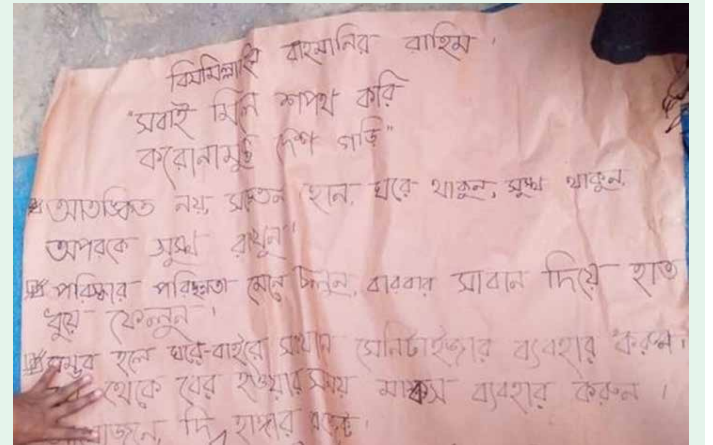 বিসমিল্লাহি রাহমানির রাহিম।
"সবাই মিলে শপথ করি
করোনামুক্ত দেশ গড়ি"
আতঙ্কিত নয়, সচেতন হোন, ঘরে থাকুন, সুস্থ থাকুন,
অপরকে সুস্থ রাখুন।
পরিস্কার পরিচ্ছন্নতা মেনে চলুন, বারবার সাবান দিয়ে হাত
ধুয়ে ফেলুন।
সম্ভব হলে ঘরে-বাইরে সেনিটাইজার ব্যবহার করুন।
থেকে বের হওয়ার সময় মাস্কস ব্যবহার করুন।
দি হাঙ্গার প্রজেক্ট।